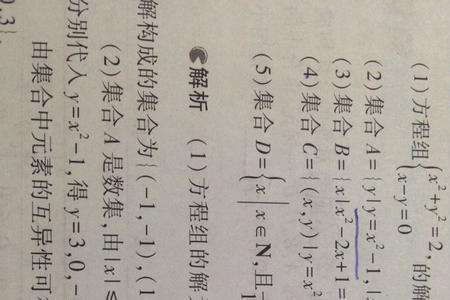 (1)方程组{x²+y²=2, x-y=0 的解
(2)集合A={y|y=x²-1,|
(3)集合B={x|x²-2x+1
(4)集合C={(x,y)|y=x²
(5)集合D={x|x∈N,且
解析 (1)方程组的解
解构成的集合为{(-1,-1),(1
(2)集合A是数集,由|x|≤
分别代入y=x²-1,得y=3,0,-
由集合中元素的互异性可
0,3}.